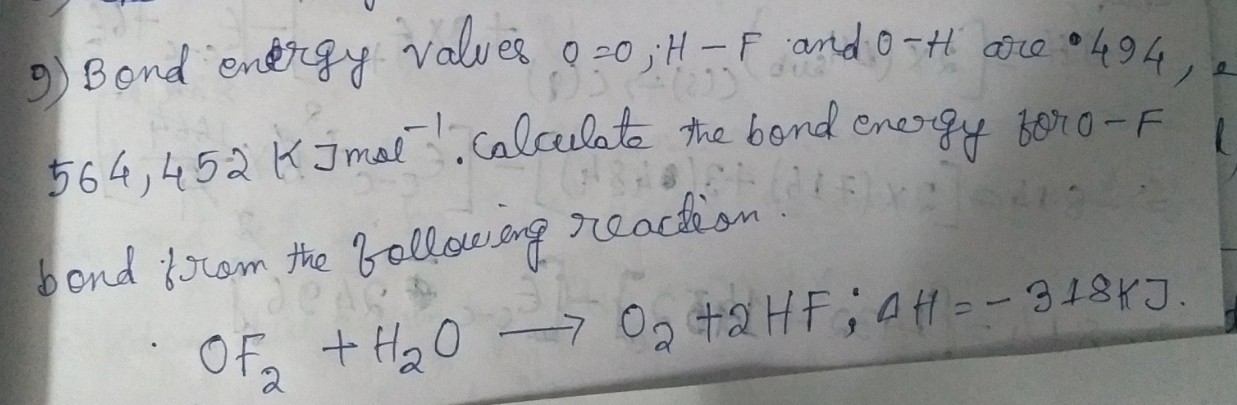 9) Bond energy values O=O; H-F and O-H are 494,
564, 452 KJmol⁻¹. Calculate the bond energy for O-F
bond from the following reaction.
OF₂ + H₂O → O₂ + 2HF; ΔH = -318KJ.